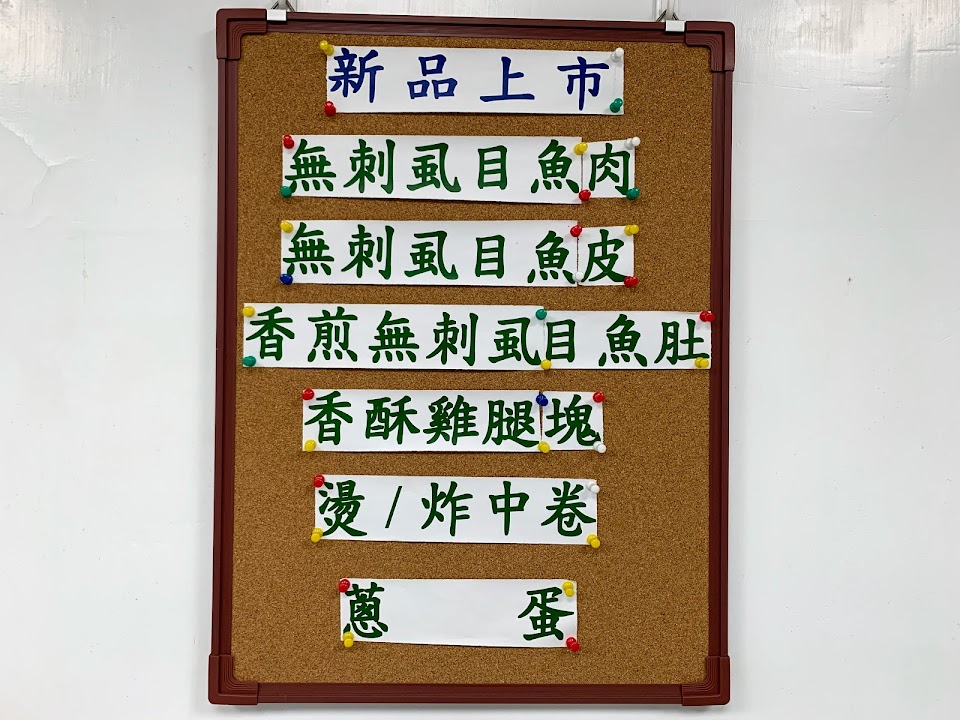 新品上市
無刺虱目魚肉
無刺虱目魚皮
香煎無刺虱目魚肚
香酥雞腿塊
燙/炸中卷
蔥 蛋